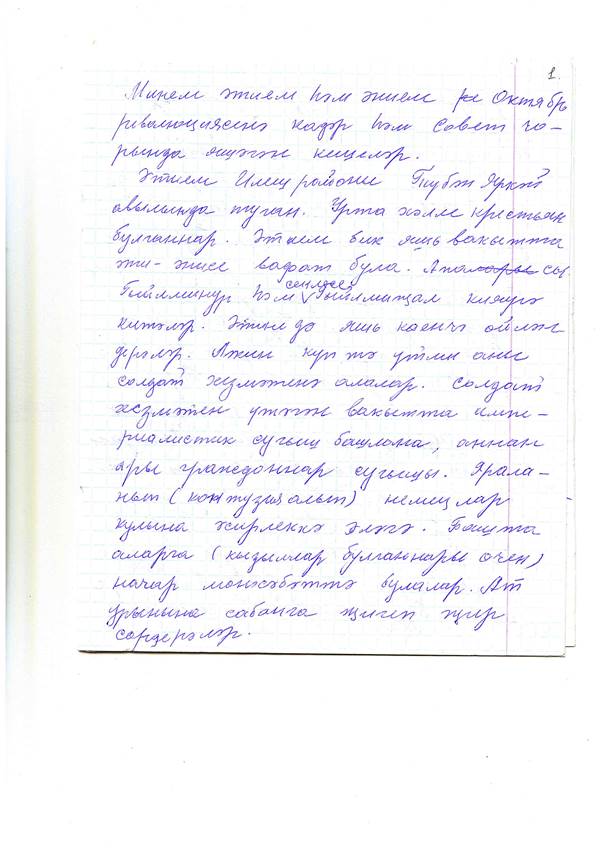 1.
Минем әтием һәм әнием Октябрь
революциясенә кадәр һәм Совет чо-
рында яшәгән кешеләр.
Әтием Илеш районы Түбән Яркәй
авылында туган. Урта хәлле крестьян
булганнар. Әтием бик яшь вакытта
әти-әнисе вафат була. Апасы
Гөйлминур һәм сеңлесе Гыйлмиҗал кияүгә
китәләр. Әтине дә яшь каенчә өйлән
дерәләр. Ләкин күп тә үтми аны
солдат хезмәтенә алалар. Солдат
хезмәтен үтәгән вакытта импе-
риалистик сугыш башлана, аннан
ары гражданнар сугышы. Ярала-
нып (контузия алып) немецлар
кулына әсирлеккә эләгә. Башта
аларга (кызыллар булганнары өчен)
начар мөнәсәбәттә булалар. Ат
урынына сабанга җигеп җир
сөрдерәләр.